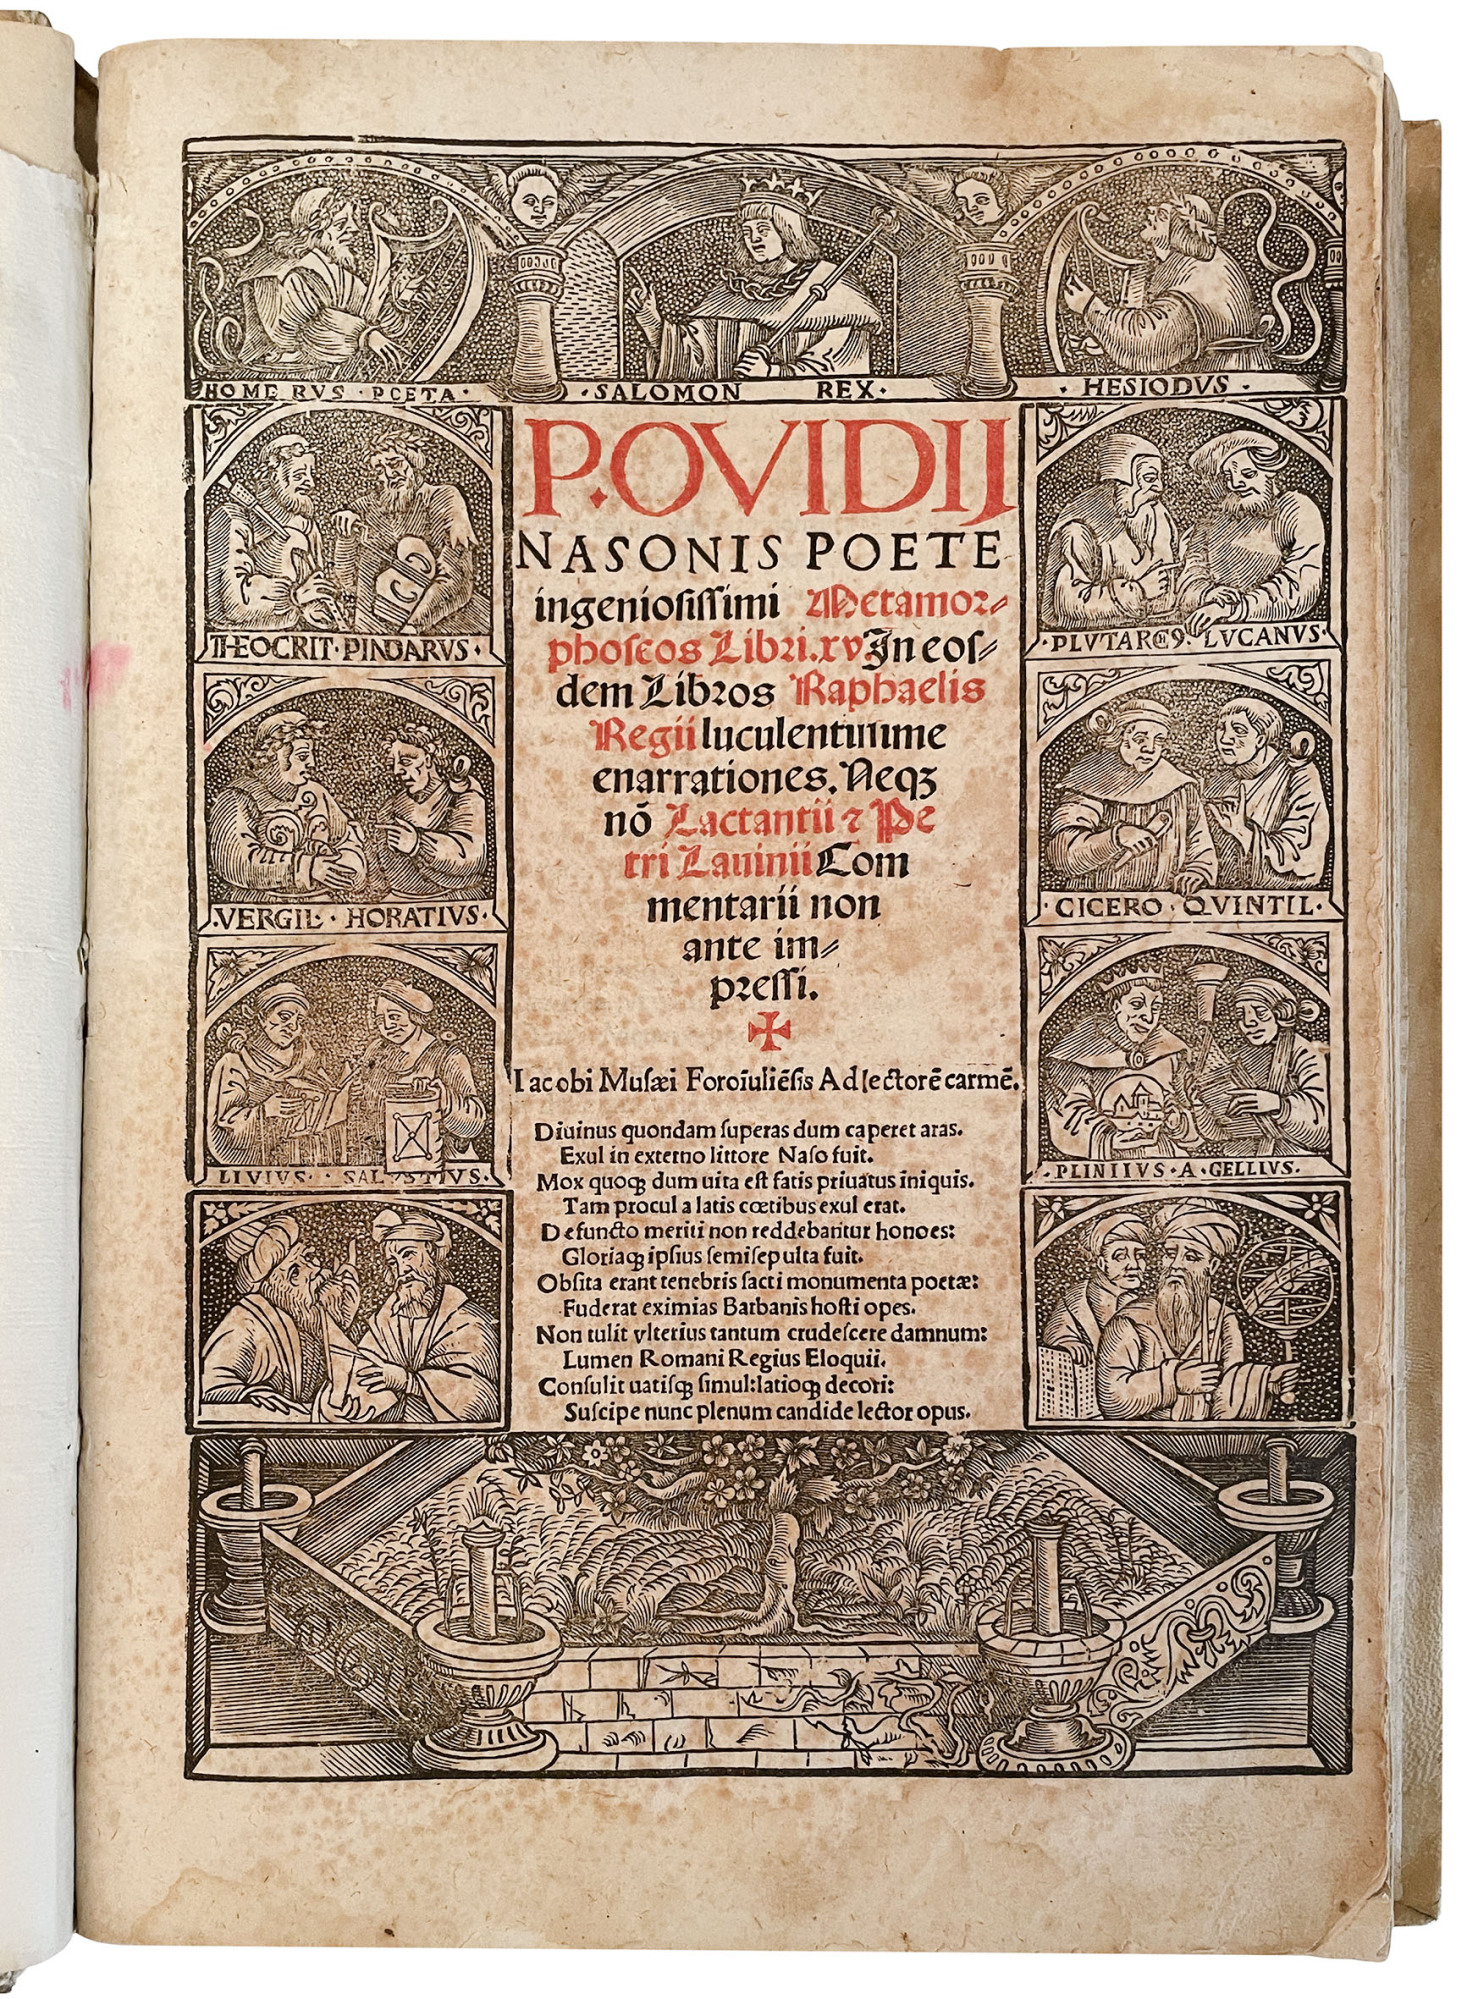 HOMERVS · POETA ·
· SALOMON REX ·
· HESIODVS ·
THEOCRIT · PINDARVS ·
· VERGIL · HORATIVS ·
LIVIVS · SALVSTIVS ·
P. OVIDIJ
NASONIS POETE
ingeniosissimi Metamor⸗
phoseos Libri.xv In eos⸗
dem Libros Raphaelis
Regii luculentissime
enarrationes. Neqꝫ
nō Lactantii ⁊ Pe
tri Lauinii Com
mentarii non
ante im⸗
pressi.
✠
Iacobi Musæi Foroiuliēsis Ad lectorē carmē.
Diuinus quondam superas dum caperet aras.
Exul in externo littore Naso fuit.
Mox quoqꝫ dum uita est fatis priuatus iniquis.
Tam procul a latis cœtibus exul erat.
Defuncto meriti non reddebantur honoes:
Gloriaqꝫ ipsius semisepulta fuit.
Obsita erant tenebris sacri monumenta poetæ:
Fuderat eximias Barbaris hosti opes.
Non tulit vlterius tantum crudescere damnum:
Lumen Romani Regius Eloquii.
Consulit uatisqꝫ simul: latioqꝫ decori:
Suscipe nunc plenum candide lector opus.
· PLVTARCH9 · LVCANVS ·
· CICERO · QVINTIL ·
· PLINIIVS · A · GELLIVS ·